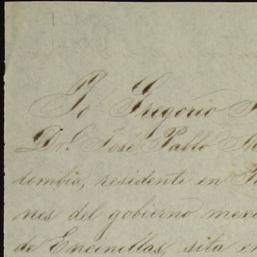 Yo Gregorio
Dr. José Pablo
lombia, residente en
nes del gobierno mexi
de Encinillas, sita en